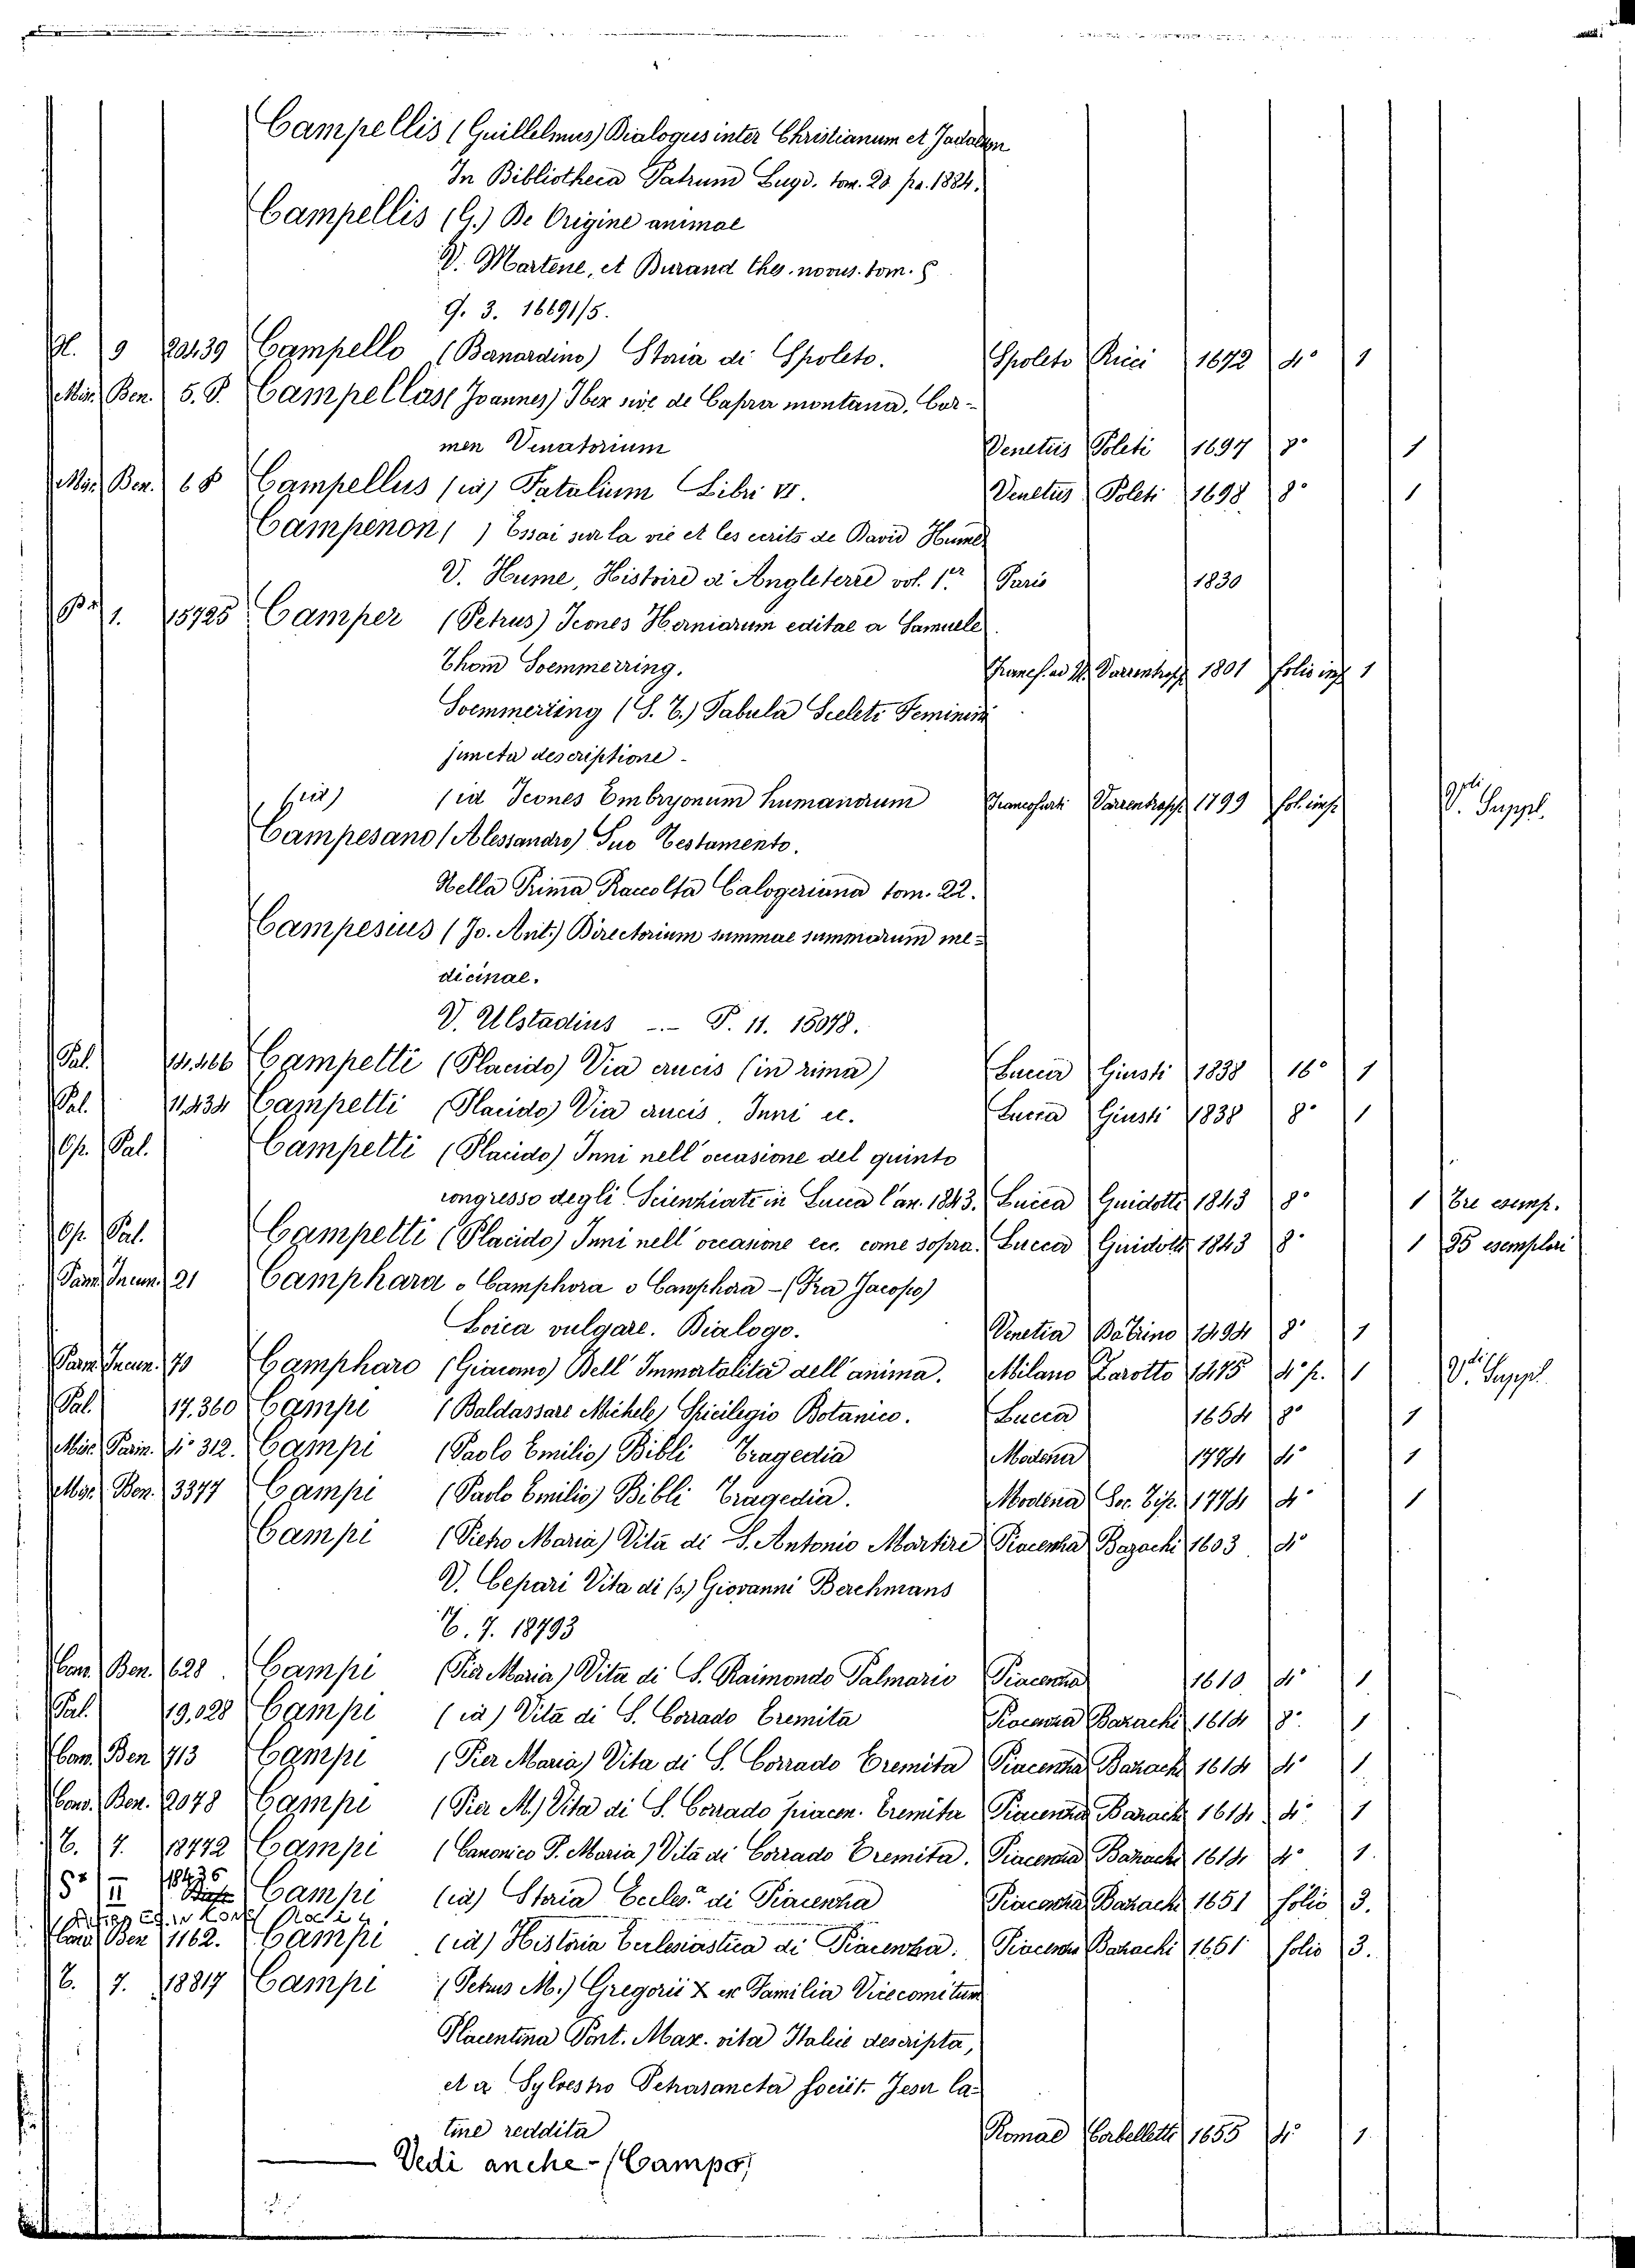 Campellis (Guillelmus) Dialogus inter Christianum et Judaeum
In Bibliotheca Patrum Lugd. tom. 20 pa. 1884.
Campellis (G.) De Origine animae
V. Martene, et Durand thes. novus. tom. 5
G. 3. 16691/5.
H. 9 20439 Campello (Bernardino) Storia di Spoleto. Spoleto Ricci 1672 4° 1
Mis. Ben. 5. 8. Campellus (Joannes) Ibex sive de Capra montana, Car-
men Venatorium Venetiis Poleti 1697 8° 1
Mis. Ben. 68 Campellus (id) Fatalium Libri VI. Venetiis Poleti 1698 8° 1
Campenon ( ) Essai sur la vie et les ecrits de David Hume
V. Hume, Histoire d'Angleterre vol. 1er Paris 1830
1. 15725 Camper (Petrus) Icones Herniarum editae a Samuele
Thom Soemmerring. Francf. ad M. Varrentrapp 1801 folio imp 1
Soemmering (S. T.) Tabula Sceleti Feminini
juncta descriptione -
(id Icones Embryonum humanorum Francofurti Varrentrapp 1799 fol. imp.
V. Suppl.
Campesano (Alessandro) Suo Testamento.
Nella Prima Raccolta Calogeriana tom. 22.
Campesius (Jo. Ant.) Directorium summae summarum me-
dicinae.
V. Ulstadius -.- P. 11. 15078.
Pal. 14.466 Campetti (Placido) Via crucis (in rima) Lucca Giusti 1838 16° 1
Pal. 11.434 Campetti (Placido) Via crucis. Inni ec. Lucca Giusti 1838 8° 1
Op. Pal. Campetti (Placido) Inni nell'occasione del quinto
congresso degli Scienziati in Lucca l'an. 1843. Lucca Guidotti 1843 8° 1 Tre esemp.
Op. Pal. Campetti (Placido) Inni nell'occasione ecc. come sopra. Lucca Guidotti 1843 8° 1 35 esemplari
Parm. Incun. 21 Camphara o Camphora o Canphora - (Fra Jacopo)
Loica vulgare. Dialogo. Venetia Batrino 1494 8° 1
Parm. Incun. 70 Campharo (Giacomo) Dell'Immortalità dell'anima. Milano Zarotto 1475 4° p. 1 V. Suppl
Pal. 17.360 Campi (Baldassare Michele) Spicilegio Botanico. Lucca 1654 8° 1
Mis. Parm. 4° 312. Campi (Paolo Emilio) Bibli Tragedia Modena 1774 4° 1
Mis. Ben. 3377 Campi (Paolo Emilio) Bibli Tragedia. Modena Soc. Tip. 1774 4° 1
Campi (Pietro Maria) Vita di S. Antonio Martire Piacenza Bazachi 1603 4°
V. Cepari Vita di (s.) Giovanni Berchmans
T. 7. 18793
Conv. Ben. 628. Campi (Pier Maria) Vita di S. Raimondo Palmario Piacenza 1610 4° 1
Pal. 19.028 Campi (id) Vita di S. Corrado Eremita Piacenza Bazachi 1614 8° 1
Conv. Ben 713 Campi (Pier Maria) Vita di S. Corrado Eremita Piacenza Bazachi 1614 4° 1
Conv. Ben. 2078 Campi (Pier M.) Vita di S. Corrado piacen. Eremita Piacenza Bazachi 1614 4° 1
T. 7. 18772 Campi (Canonico P. Maria) Vita di Corrado Eremita. Piacenza Bazachi 1614 4° 1.
II 18436 Campi (id) Storia Eccles.a di Piacenza Piacenza Bazachi 1651 folio 3.
Conv. Ben 1162. Campi (id) Historia Ecclesiastica di Piacenza. Piacenza Bazachi 1651 folio 3.
T. 7. 18817 Campi (Petrus M.) Gregorii X ex Familia Vicecomitum
Placentina Pont. Max. vita Italice descripta,
et a Sylvestro Petrasancta societ. Jesu la-
tine reddita Romae Corbelletti 1655 4° 1
Vedi anche - (Campo)